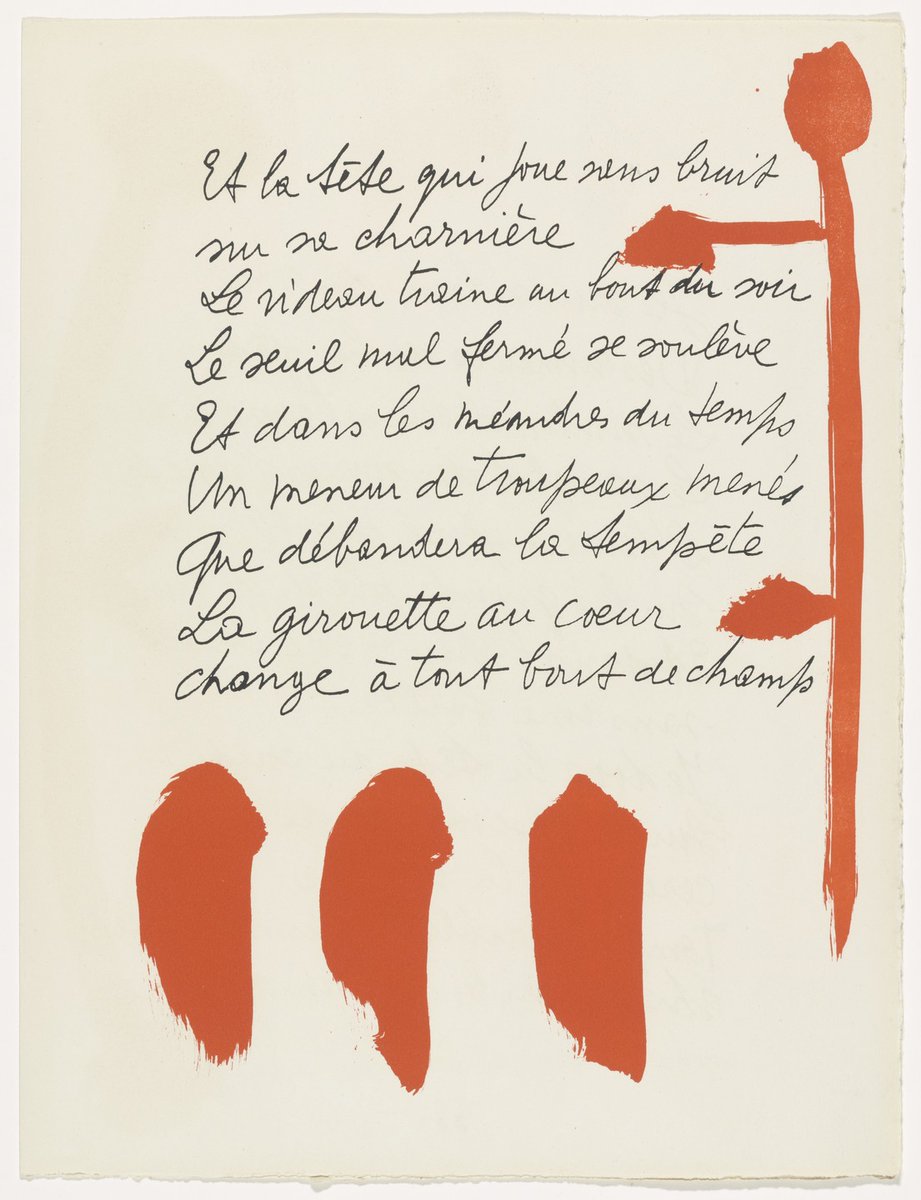 Et la tête qui joue sans bruit
sur sa charnière
Le rideau traine au bout du soir
Le seuil mal fermé se soulève
Et dans les méandres du temps
Un meneur de troupeaux menés
Que débandera la tempête
La girouette au coeur
change à tout bout de champ